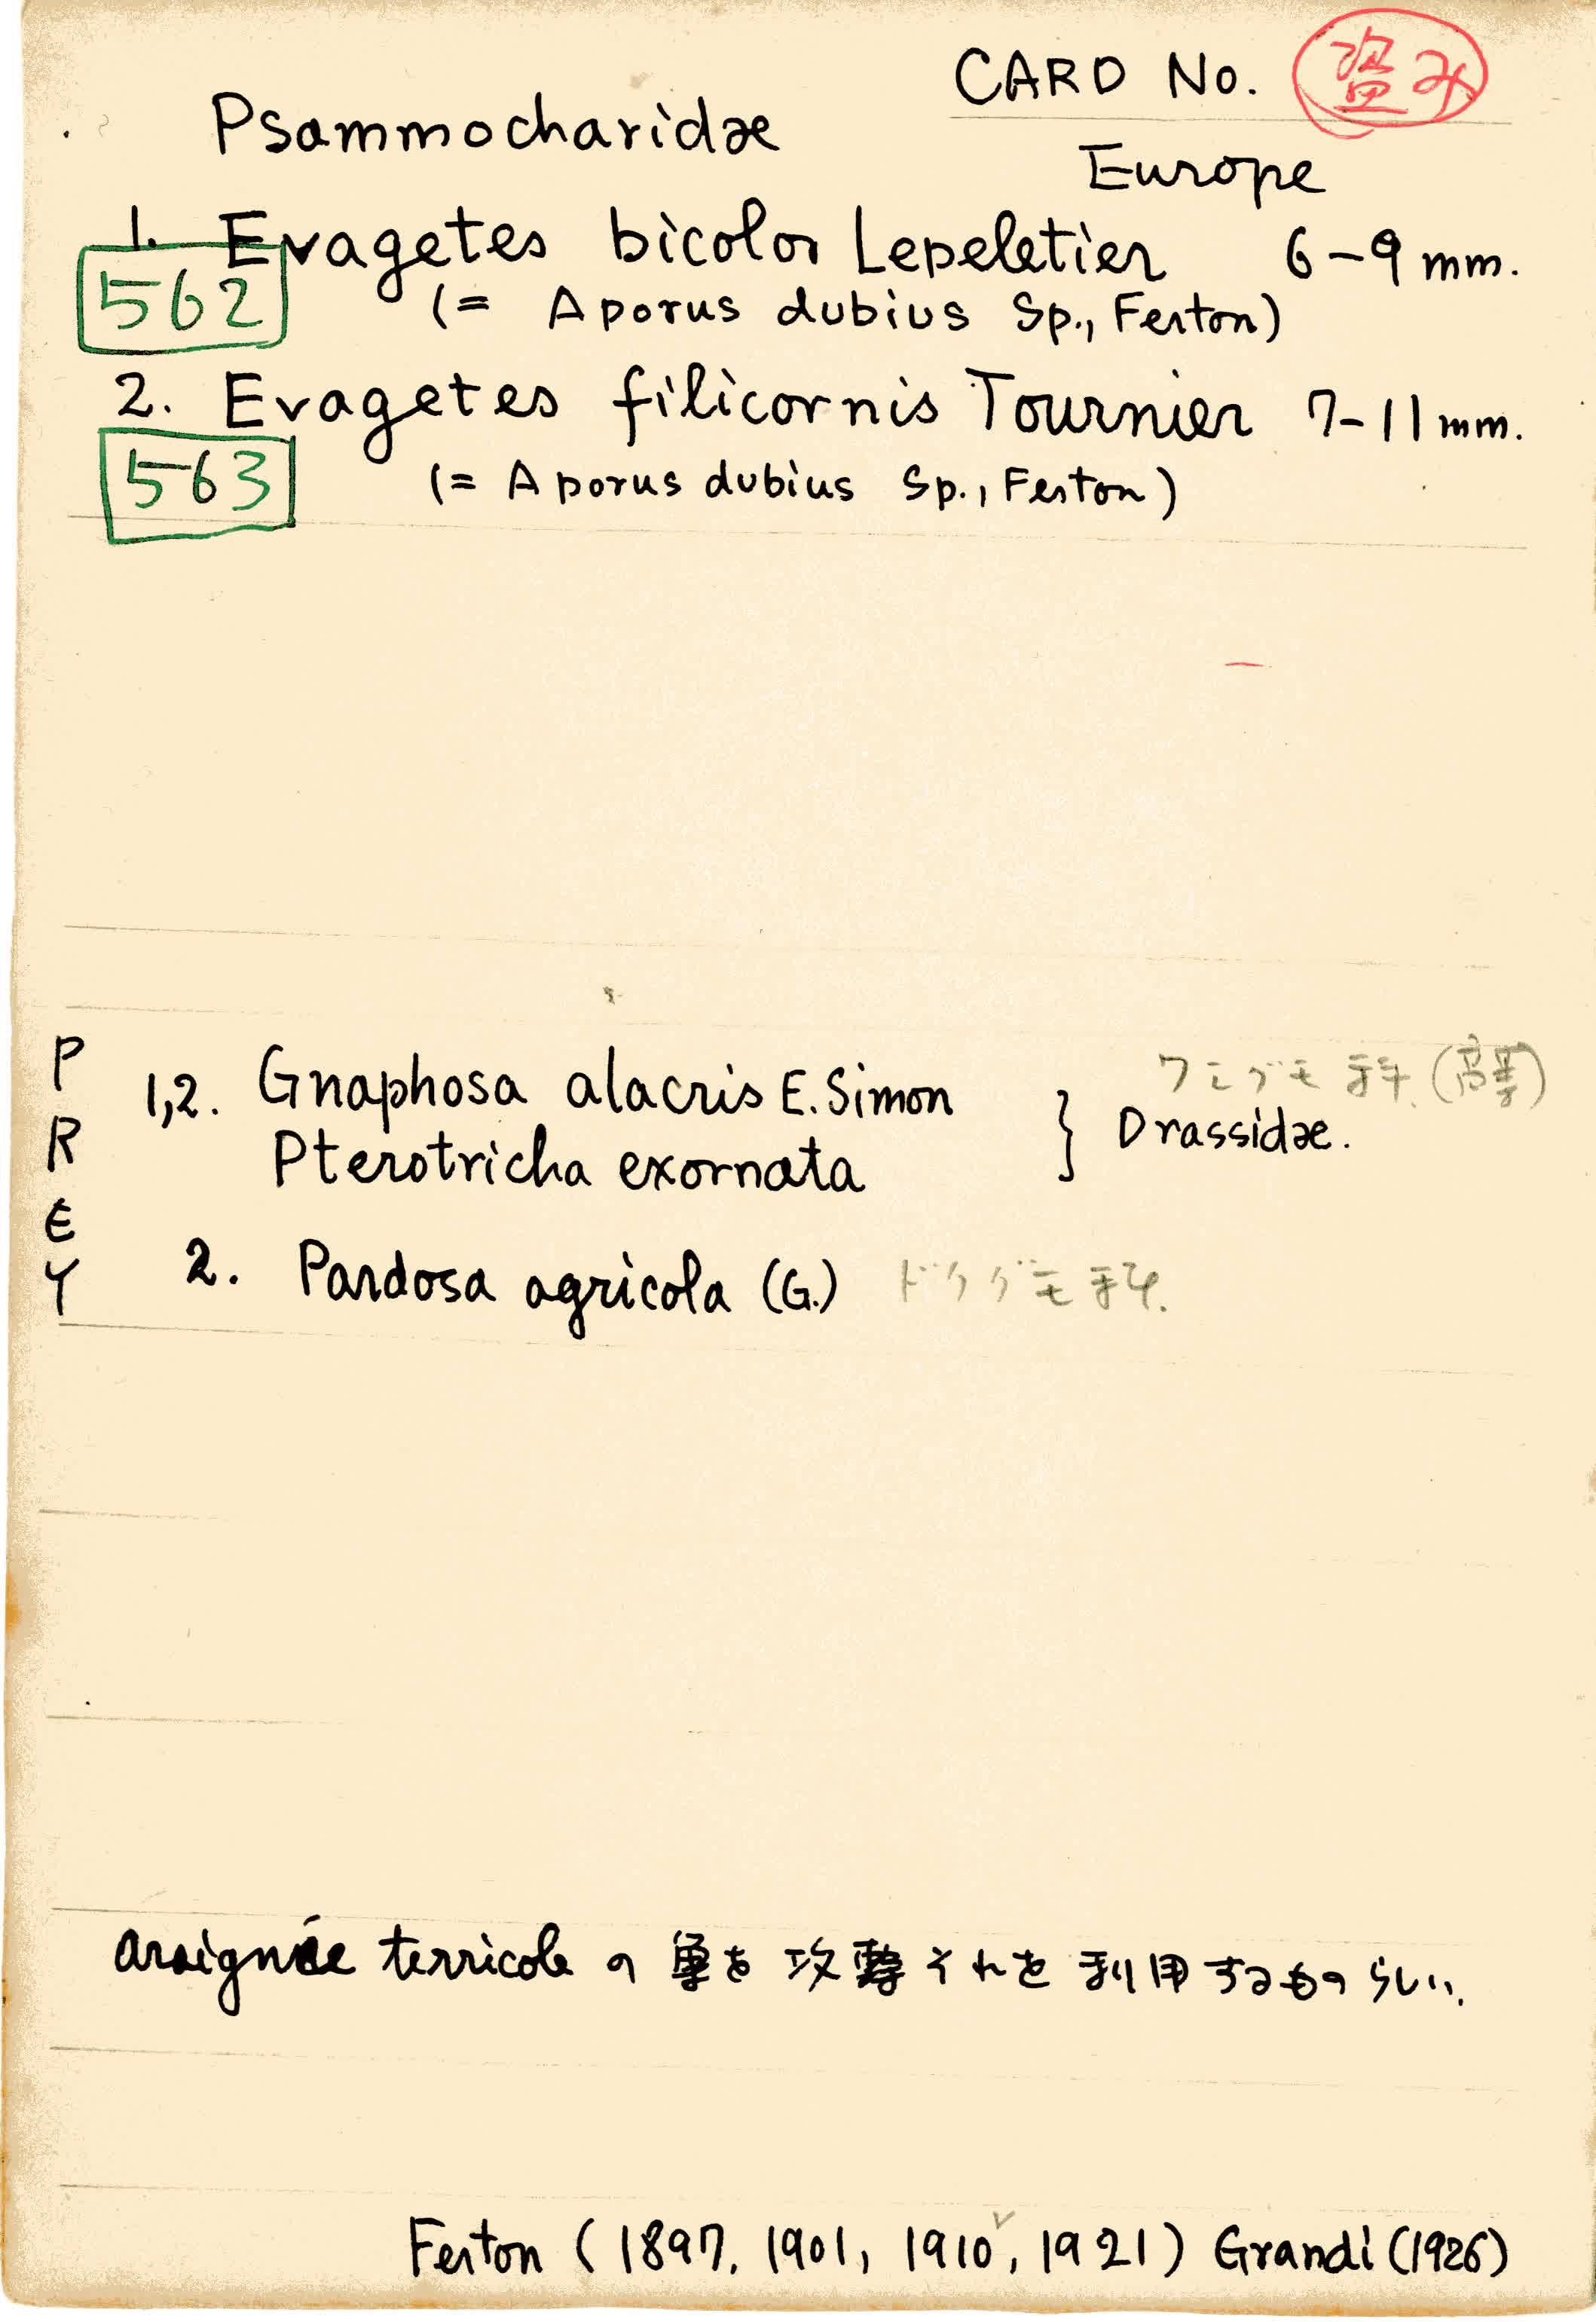 CARD No. 盗み
Psammocharidæ
Europe
1. Evagetes bicolor Lepeletier 6-9 mm.
562
(= Aporus dubius Sp., Ferton)
2. Evagetes filicornis Tournier 7-11 mm.
563
(= Aporus dubius Sp., Ferton)
PREY
ワシグモ科. (高等)
1,2. Gnaphosa alacris E. Simon
Pterotricha exornata
} Drassidæ.
2. Pardosa agricola (G.) ドクグモ科.
araignée terricole の巣を攻撃それを利用するものらしい.
Ferton (1897, 1901, 1910, 1921) Grandi (1926)